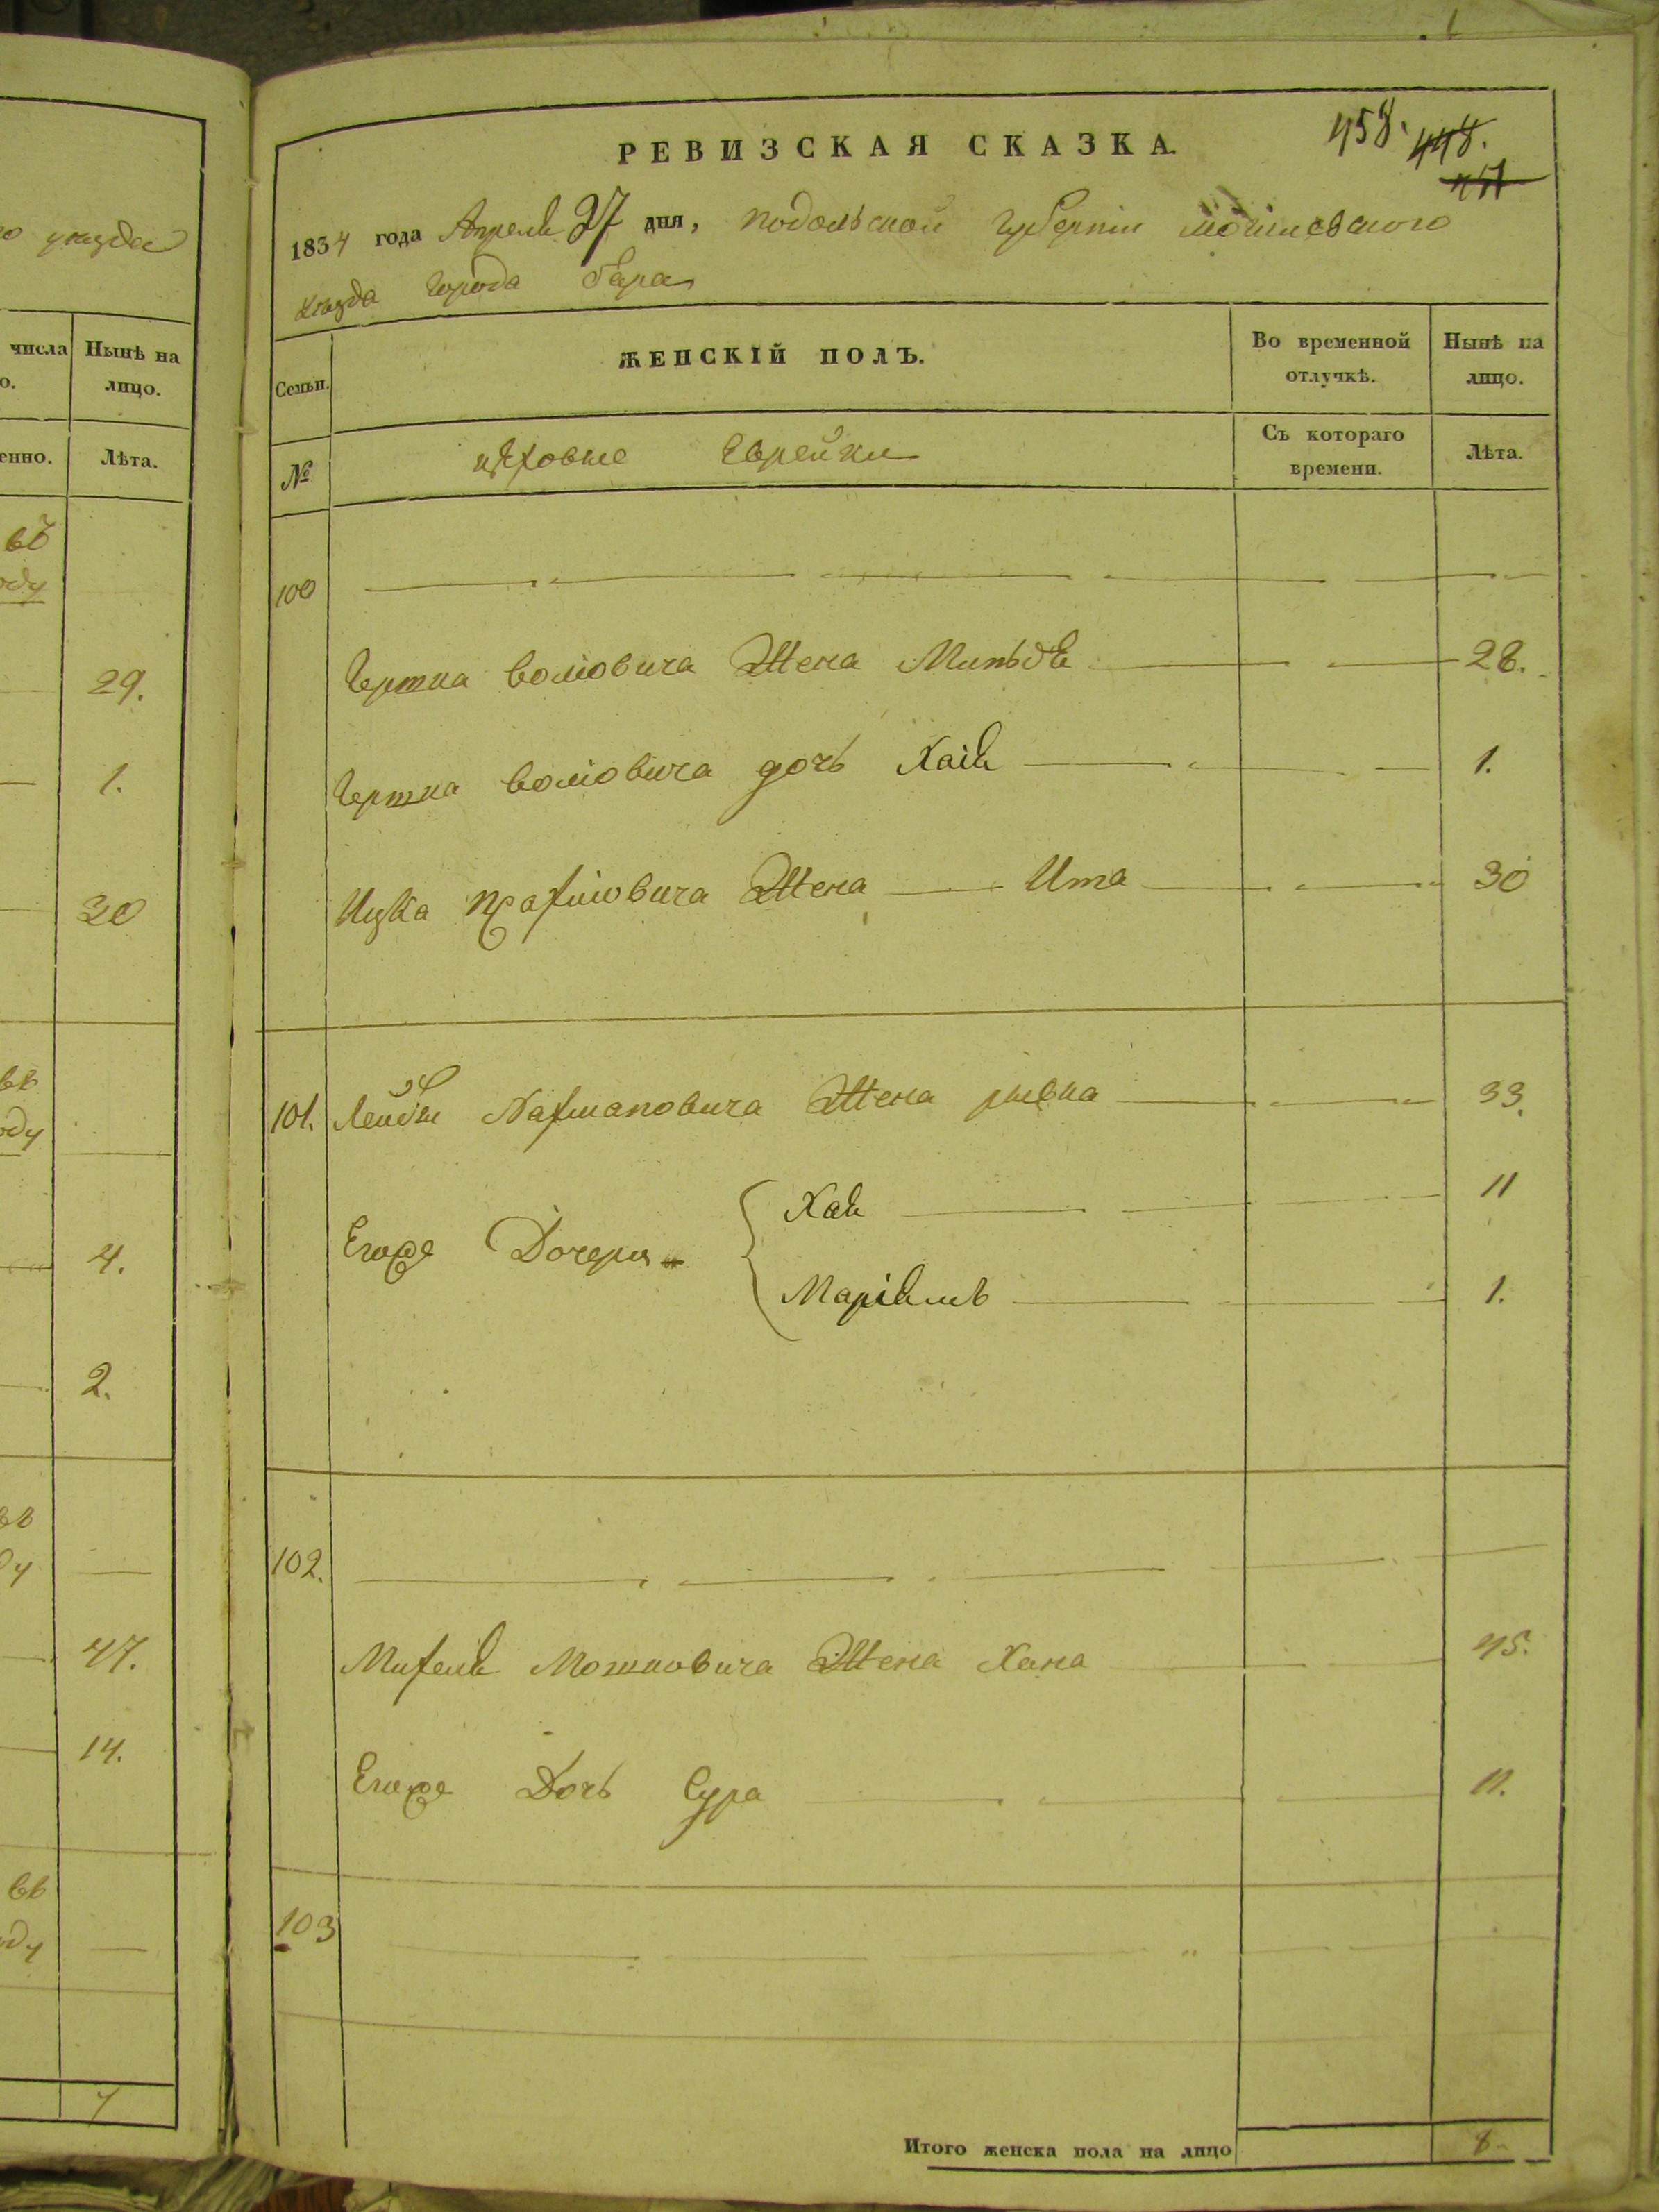 о уезда
числа Нынѣ на
о. лицо.
енно. Лѣта.
въ
оду
29.
1.
30
въ
оду
4.
2.
въ
ду
47.
14.
въ
оду
7
458. 448.
РЕВИЗСКАЯ СКАЗКА.
1834 года Апреля 27 дня, подольской губерніи могилевского
уезда города бара
Семьи. ЖЕНСКІЙ ПОЛЪ. Во временной отлучкѣ. Нынѣ на лицо.
№ цѣховые Еврейки Съ котораго времени. Лѣта.
100
Гершка волковича Жена Миньдя 28.
Гершка волковича дочь Хаія 1.
Ицка Жена Ита 30
101. Лейбы Нахмановича Жена рывка 33.
Хая 11
Его же Дочери
Маріямъ 1.
102.
Михеля Мошковича Жена Хана 45.
Его же Дочь Сура 11.
103
Итого женска пола на лицо 8.